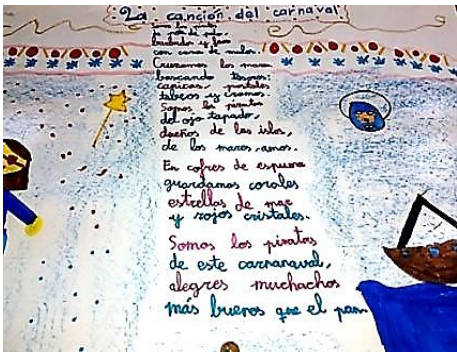 La canción del carnaval
Somos los piratas
del pelo
barbudos y feos
con cara de malos.
Cruzamos los mares
buscando tesoros:
caricias, postales
tebeos y cromos.
Somos los piratas
del ojo tapado,
dueños de las islas,
de los mares, amos.
En cofres de espuma
guardamos corales
estrellas de mar
y rojos cristales.
Somos los piratas
de este carnaraval,
alegres muchachos
más buenos que el pan.